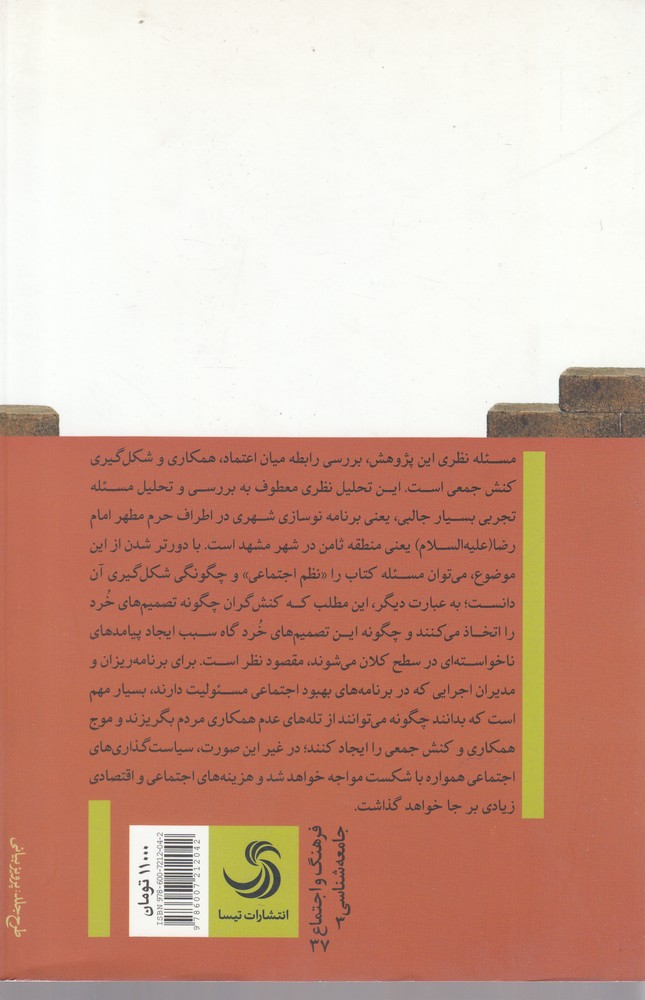 مسئله نظری این پژوهش، بررسی رابطه میان اعتماد، همکاری و شکل‌گیری
کنش جمعی است. این تحلیل نظری معطوف به بررسی و تحلیل مسئله
تجربی بسیار جالبی، یعنی برنامه نوسازی شهری در اطراف حرم مطهر امام
رضا(علیه‌السلام) یعنی منطقه ثامن در شهر مشهد است. با دورتر شدن از این
موضوع، می‌توان مسئله کتاب را «نظم اجتماعی» و چگونگی شکل‌گیری آن
دانست؛ به عبارت دیگر، این مطلب که کنش‌گران چگونه تصمیم‌های خُرد
را اتخاذ می‌کنند و چگونه این تصمیم‌های خُرد گاه سبب ایجاد پیامدهای
ناخواسته‌ای در سطح کلان می‌شوند، مقصود نظر است. برای برنامه‌ریزان و
مدیران اجرایی که در برنامه‌های بهبود اجتماعی مسئولیت دارند، بسیار مهم
است که بدانند چگونه می‌توانند از تله‌های عدم همکاری مردم بگریزند و موج
همکاری و کنش جمعی را ایجاد کنند؛ در غیر این صورت، سیاست‌گذاری‌های
اجتماعی همواره با شکست مواجه خواهد شد و هزینه‌های اجتماعی و اقتصادی
زیادی بر جا خواهد گذاشت.
فرهنگ و اجتماع ۳۷
جامعه‌شناسی ۴
انتشارات تیسا
9786007212042
ISBN 978-600-7212-04-2
۱۱۰۰۰ تومان
طرح جلد: پرویز بیانی